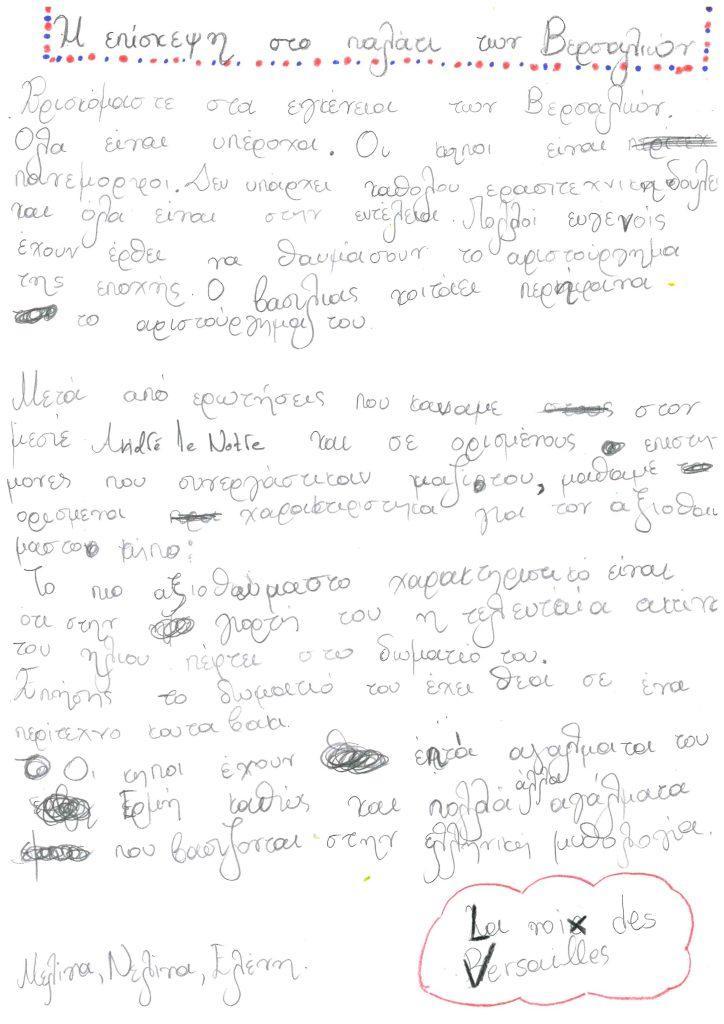 Η επίσκεψη στο παλάτι των Βερσαλιών
Βρισκόμαστε στα εγκένεια των Βερσαλιών.
Όλα είναι υπέροχα. Οι κηποι είναι
πανέμορφοι. Δεν υπάρχει καθόλου ερασιτεχνικη δουλει
και όλα είναι στην εντέλεια. Πολλοί ευγενοίς
έχουν έρθει να θαυμάσουν το αριστούργημα
της εποχής. Ο βασιλιας κοιτάει περήφανα
το αριστούργημα του.
Μετά από ερωτήσεις που καναμε στον
μεσιέ André le Notre και σε ορισμένους επιστη
μονες που συνεργάστικαν μαζί του, μαθαμε
ορισμενα χαρακτιριστηκα για τον αξιοθαυ
μαστο κίπο:
Το πιο αξιοθαύμαστο χαρακτηριστικό είναι
ότι στην γιορτή του η τελευταία ακτίνα
του ηλιου πέφτει στο δωματιό του.
Επήσης το δωματιό του έχει θεα σε ένα
περίτεχνο
Οι κηποι έχουν επτά αγαλματα του
Ερμή καθώς και πολλά άλλα αγάλματα
που βασιζονται στην ελληνικη μυθολογία.
La roix des
Versailles
Μελίνα, Νελίνα, Ελένη.